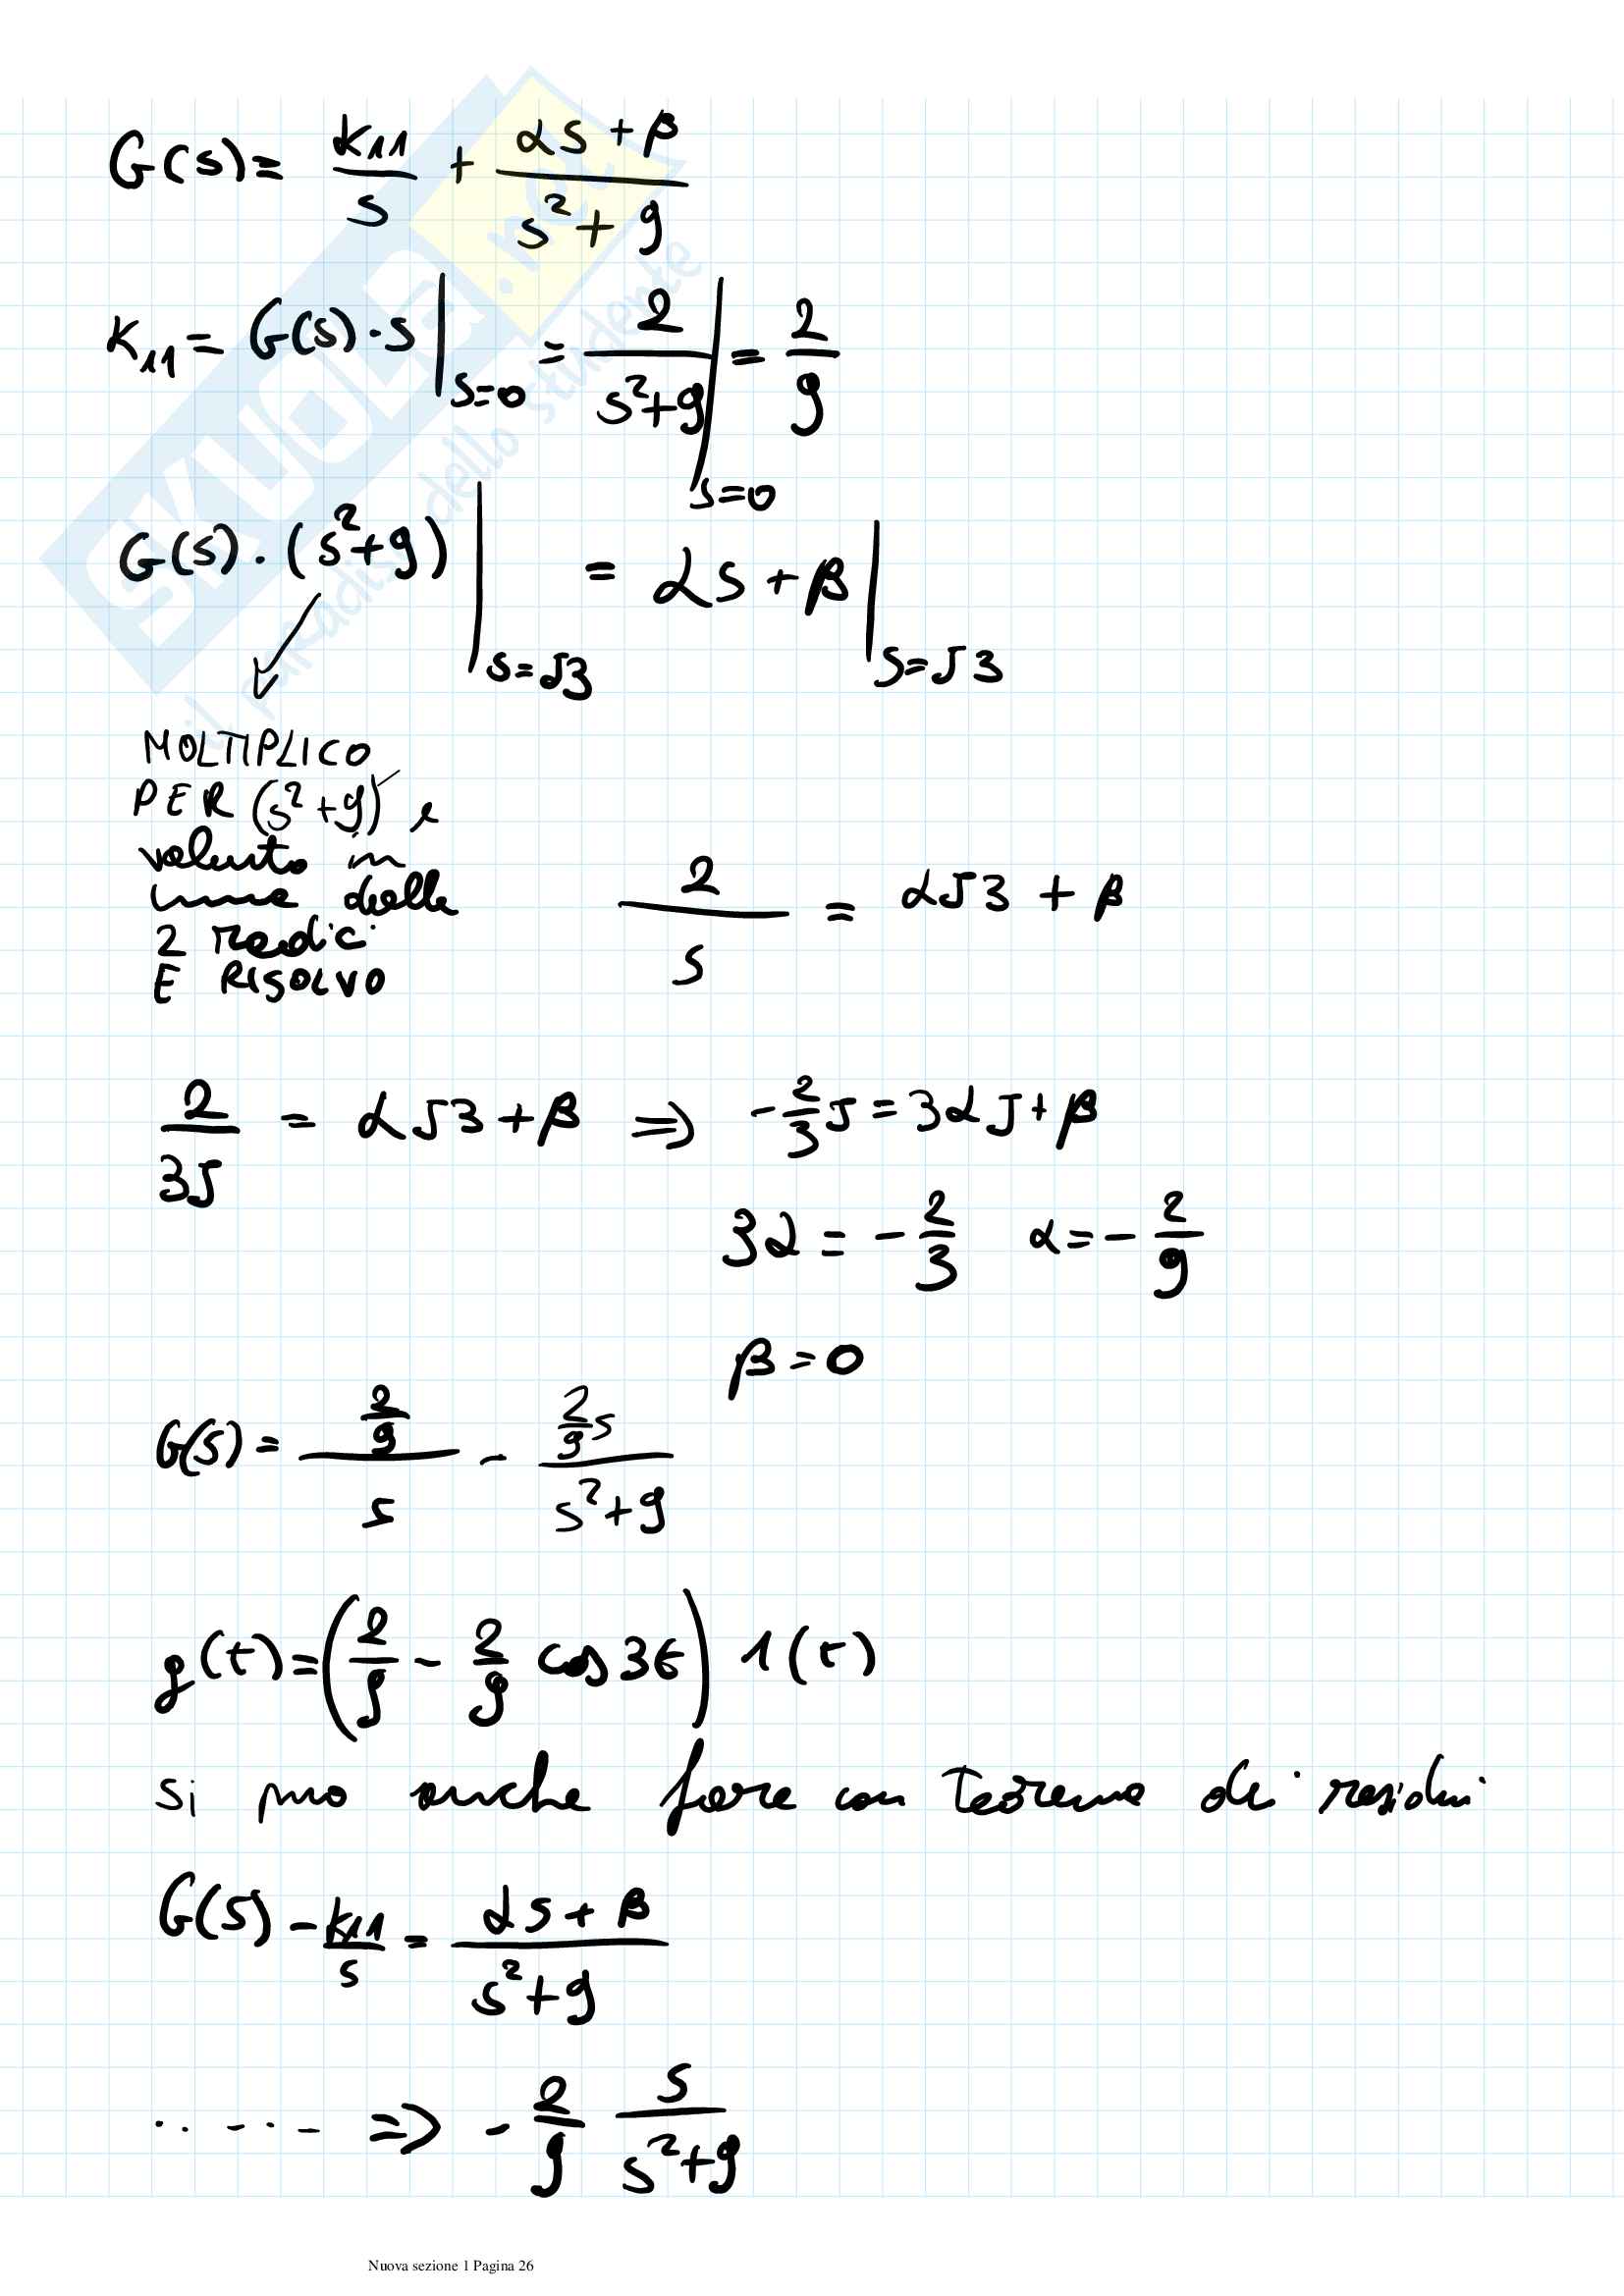 G(s)= K11/s + (αs+β)/(s²+9)
K11 = G(s)·s |s=0 = 2/(s²+9) |s=0 = 2/9
G(s)·(s²+9) |s=J3 = αs+β |s=J3
MOLTIPLICO
PER (s²+9) e
valuto in
una delle
2 radici
E RISOLVO
2/s = αJ3 + β
2/3J = αJ3+β ⇒ -2/3 J = 3αJ+β
3α = -2/3 α=-2/9
β=0
G(s)= (2/9)/s - (2/9 s)/(s²+9)
g(t)=(2/9 - 2/9 cos3t) 1(t)
si puo anche fare con Teorema dei residui
G(s) - K11/s = (αs+β)/(s²+9)
..-..- ⇒ -2/9 s/(s²+9)
SKUOLA.net
il paradiso dello studente
Nuova sezione 1 Pagina 26